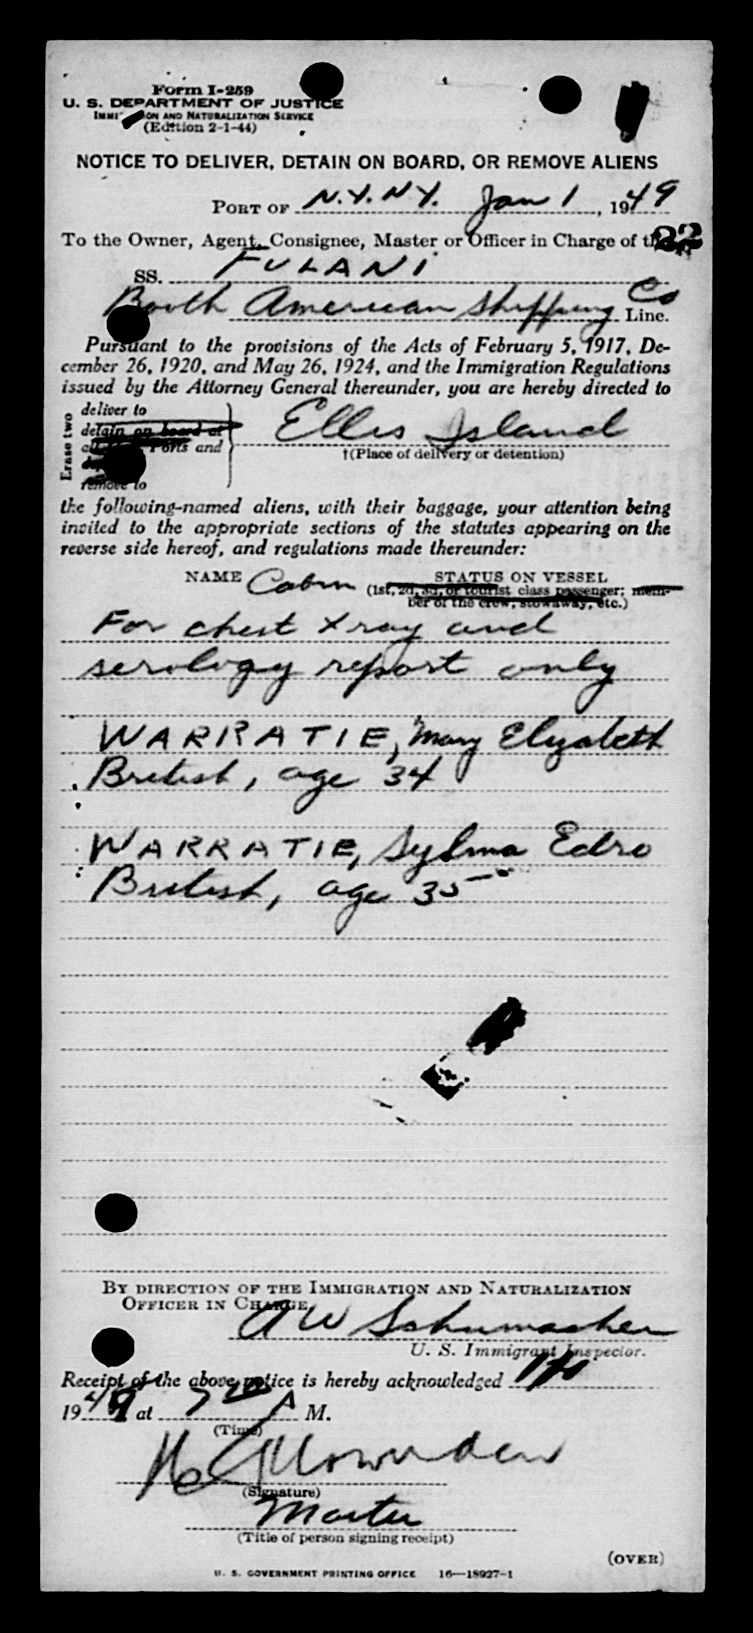 Form I-259
U. S. DEPARTMENT OF JUSTICE
IMMI ON AND NATURALIZATION SERVICE
(Edition 2-1-44)
NOTICE TO DELIVER, DETAIN ON BOARD, OR REMOVE ALIENS
PORT OF N.Y.N.Y. Jan 1, 1949
To the Owner, Agent, Consignee, Master or Officer in Charge of the
22
SS. FULANI
Booth American Shipping Co Line.
Pursuant to the provisions of the Acts of February 5, 1917, De-
cember 26, 1920, and May 26, 1924, and the Immigration Regulations
issued by the Attorney General thereunder, you are hereby directed to
Erase two
deliver to
detain on board at
Ports and
remove to
Ellis Island
†(Place of delivery or detention)
the following-named aliens, with their baggage, your attention being
invited to the appropriate sections of the statutes appearing on the
reverse side hereof, and regulations made thereunder:
NAME Cabin STATUS ON VESSEL
(1st, 2d, 3d, or tourist class passenger; mem-
ber of the crew, stowaway, etc.)
For chest X ray and
serology report only
WARRATIE, Mary Elizabeth
British, age 34
WARRATIE, Sylma Edro
British, age 35
BY DIRECTION OF THE IMMIGRATION AND NATURALIZATION
OFFICER IN CHARGE,
A W Schumacher
U. S. Immigrant Inspector.
Receipt of the above notice is hereby acknowledged 1/1
1949 at 7 20 A M.
(Time)
(Signature)
Master
(Title of person signing receipt)
(OVER)
U. S. GOVERNMENT PRINTING OFFICE 16—18927-1